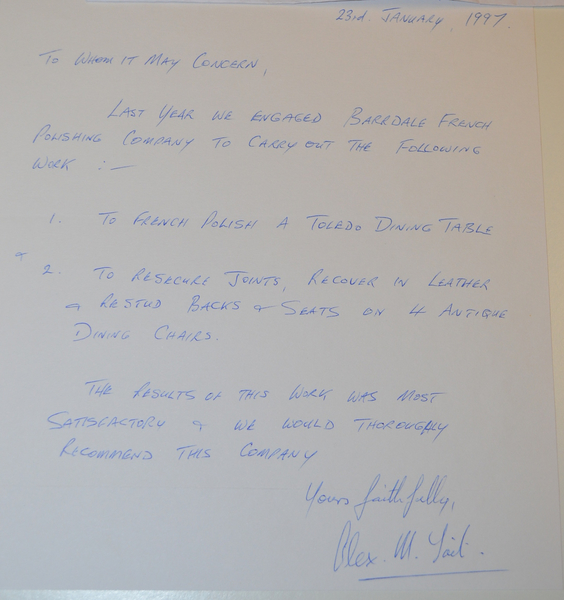 23rd. JANUARY, 1997.
TO WHOM IT MAY CONCERN,
LAST YEAR WE ENGAGED BARRDALE FRENCH
POLISHING COMPANY TO CARRY OUT THE FOLLOWING
WORK :—
1. TO FRENCH POLISH A TOLEDO DINING TABLE
&
2. TO RESECURE JOINTS, RECOVER IN LEATHER
& RESTUD BACKS & SEATS ON 4 ANTIQUE
DINING CHAIRS.
THE RESULTS OF THIS WORK WAS MOST
SATISFACTORY & WE WOULD THOROUGHLY
RECOMMEND THIS COMPANY
Yours faithfully,
Alex. M.